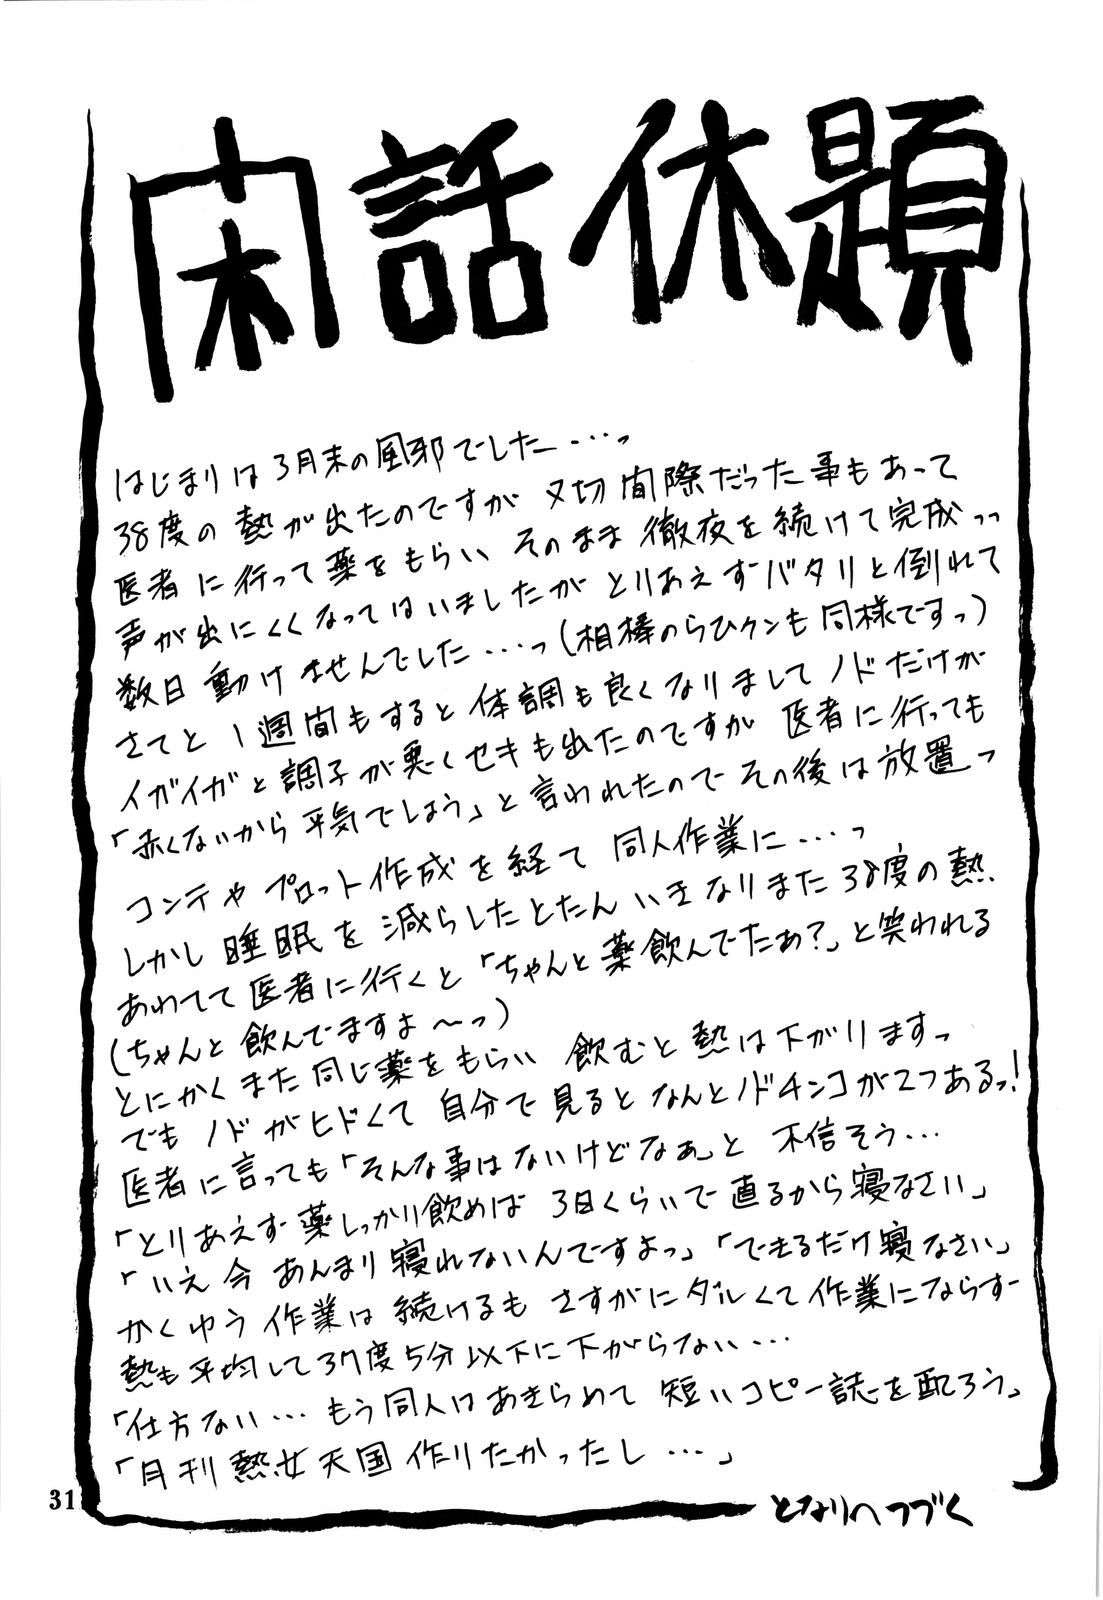 閑話休題
はじまりは3月末の風邪でした…っ
38度の熱が出たのですが〆切間際だった事もあって
医者に行って薬をもらい そのまま徹夜を続けて完成っっ
声が出にくくなってはいましたが とりあえずバタリと倒れて
数日動けませんでした…っ(相棒のらひクンも同様ですっ)
さてと 1週間もすると体調も良くなりまして ノドだけが
イガイガと調子が悪くセキも出たのですが 医者に行っても
「赤くないから平気でしょう」と言われたので その後は放置っ
コンテや プロット作成を経て 同人作業に…っ
しかし睡眠を減らしたとたん いきなりまた38度の熱
あわてて医者に行くと「ちゃんと薬飲んでたぁ?」と笑われる
(ちゃんと飲んでますよ〜っ)
とにかくまた同じ薬をもらい 飲むと熱は下がりますっ
でも ノドがヒドくて 自分で見ると なんとノドチンコが2つあるっ!
医者に言っても「そんな事はないけどなぁ」と 不信そう…
「とりあえず薬しっかり飲めば 3日くらいで直るから寝なさい」
「いえ今 あんまり寝れないんですよっ」「できるだけ寝なさい」
かくゆう作業は続けるも さすがにダルくて作業にならず
熱も平均して37度5分以下に下がらない…
「仕方ない…もう同人はあきらめて 短いコピー誌を配ろう」
「月刊熱女天国作りたかったし…」
となりへつづく
31